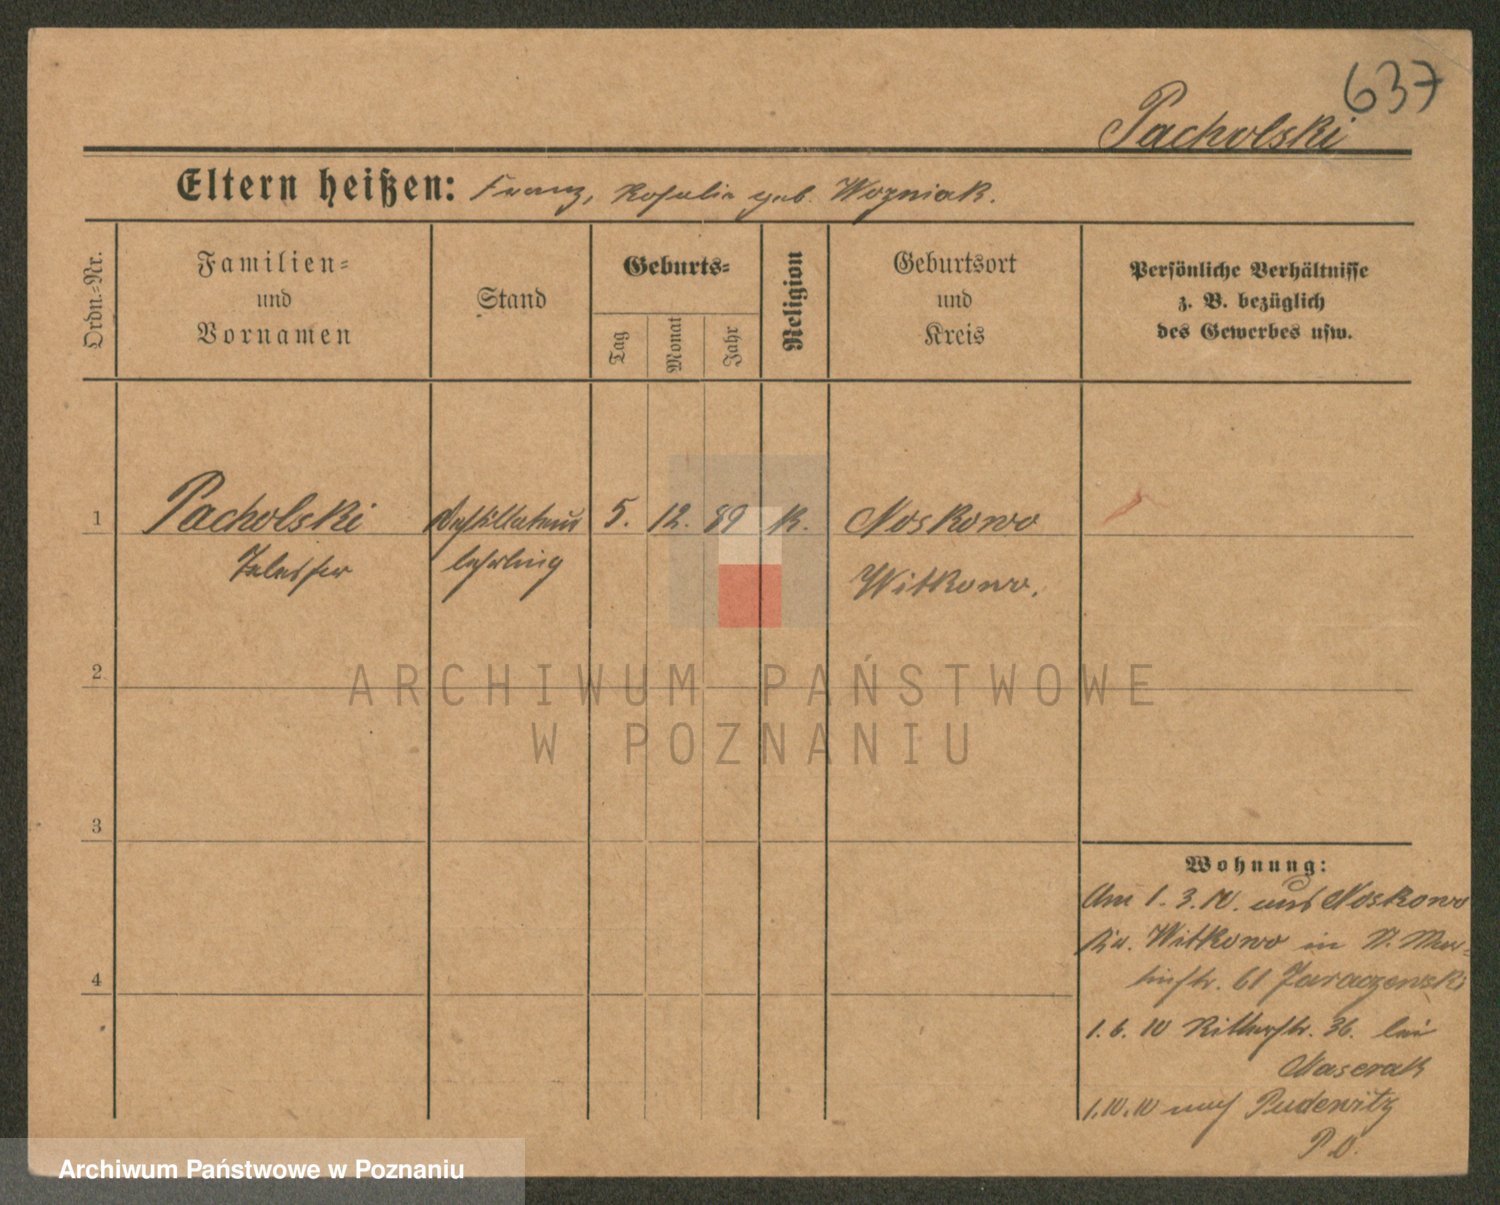 637
Pacholski
Eltern heißen: Franz, Rosalie geb. Wozniak.
Ordn.-Nr.
Familien- und Vornamen
Stand
Geburts-
Tag
Monat
Jahr
Religion
Geburtsort und Kreis
Persönliche Verhältnisse z. B. bezüglich des Gewerbes usw.
1 Pacholski Destillateur 5. 12. 89 K. Noskowo
lehrling Witkowo.
2
3
4
Wohnung:
Am 1. 3. 10. aus Noskowo
Kr. Witkowo in St. Mar-
tinstr. 61 Jaraczewski
1. 6. 10 Ritterstr. 36. bei
Maserak
1. 10. 10 nach Pudewitz
ARCHIWUM PAŃSTWOWE
W POZNANIU
Archiwum Państwowe w Poznaniu